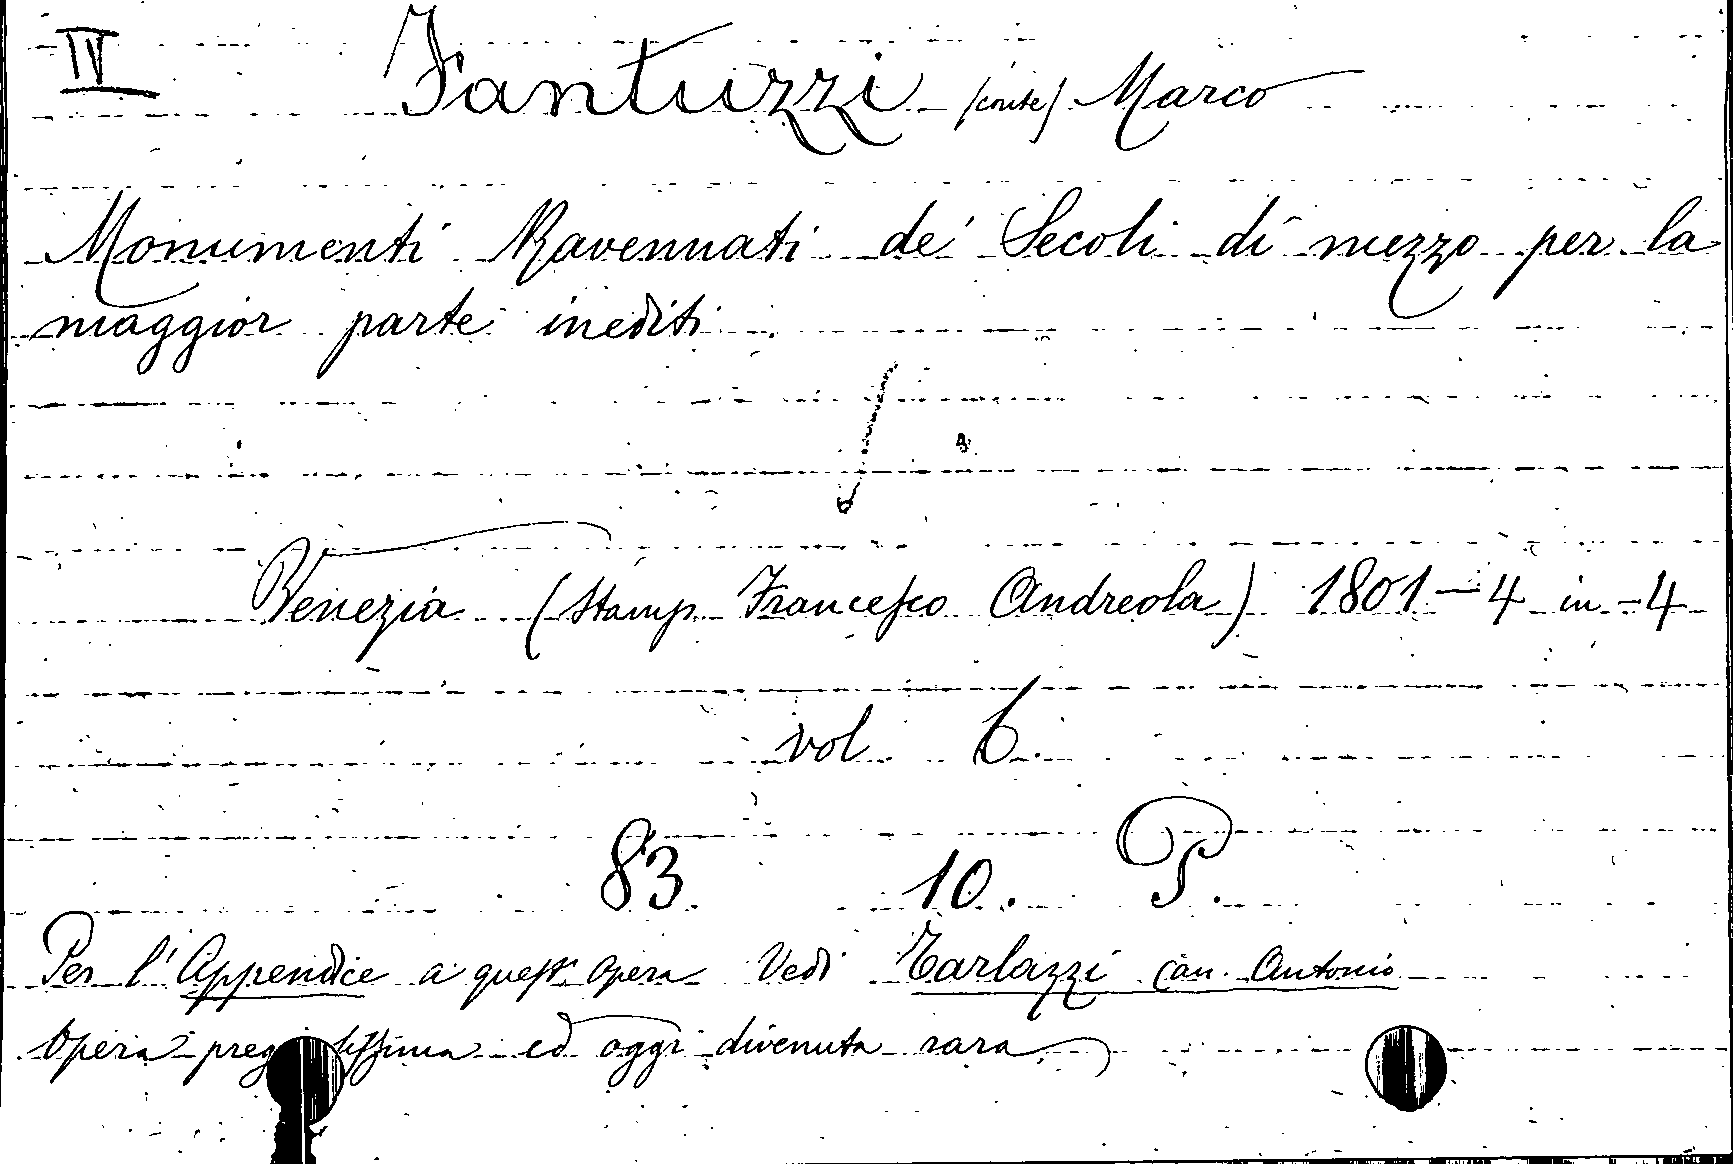 IV
Fantuzzi (conte) Marco
Monumenti Ravennati de' Secoli di mezzo per la
maggior parte inediti.
Venezia (Stamp. Francesco Andreola) 1801-4 in-4
vol. 6.
83. 10. P.
Per l'Appendice a quest'opera Vedi Tarlazzi Can. Antonio
Opera ed oggi divenuta rara